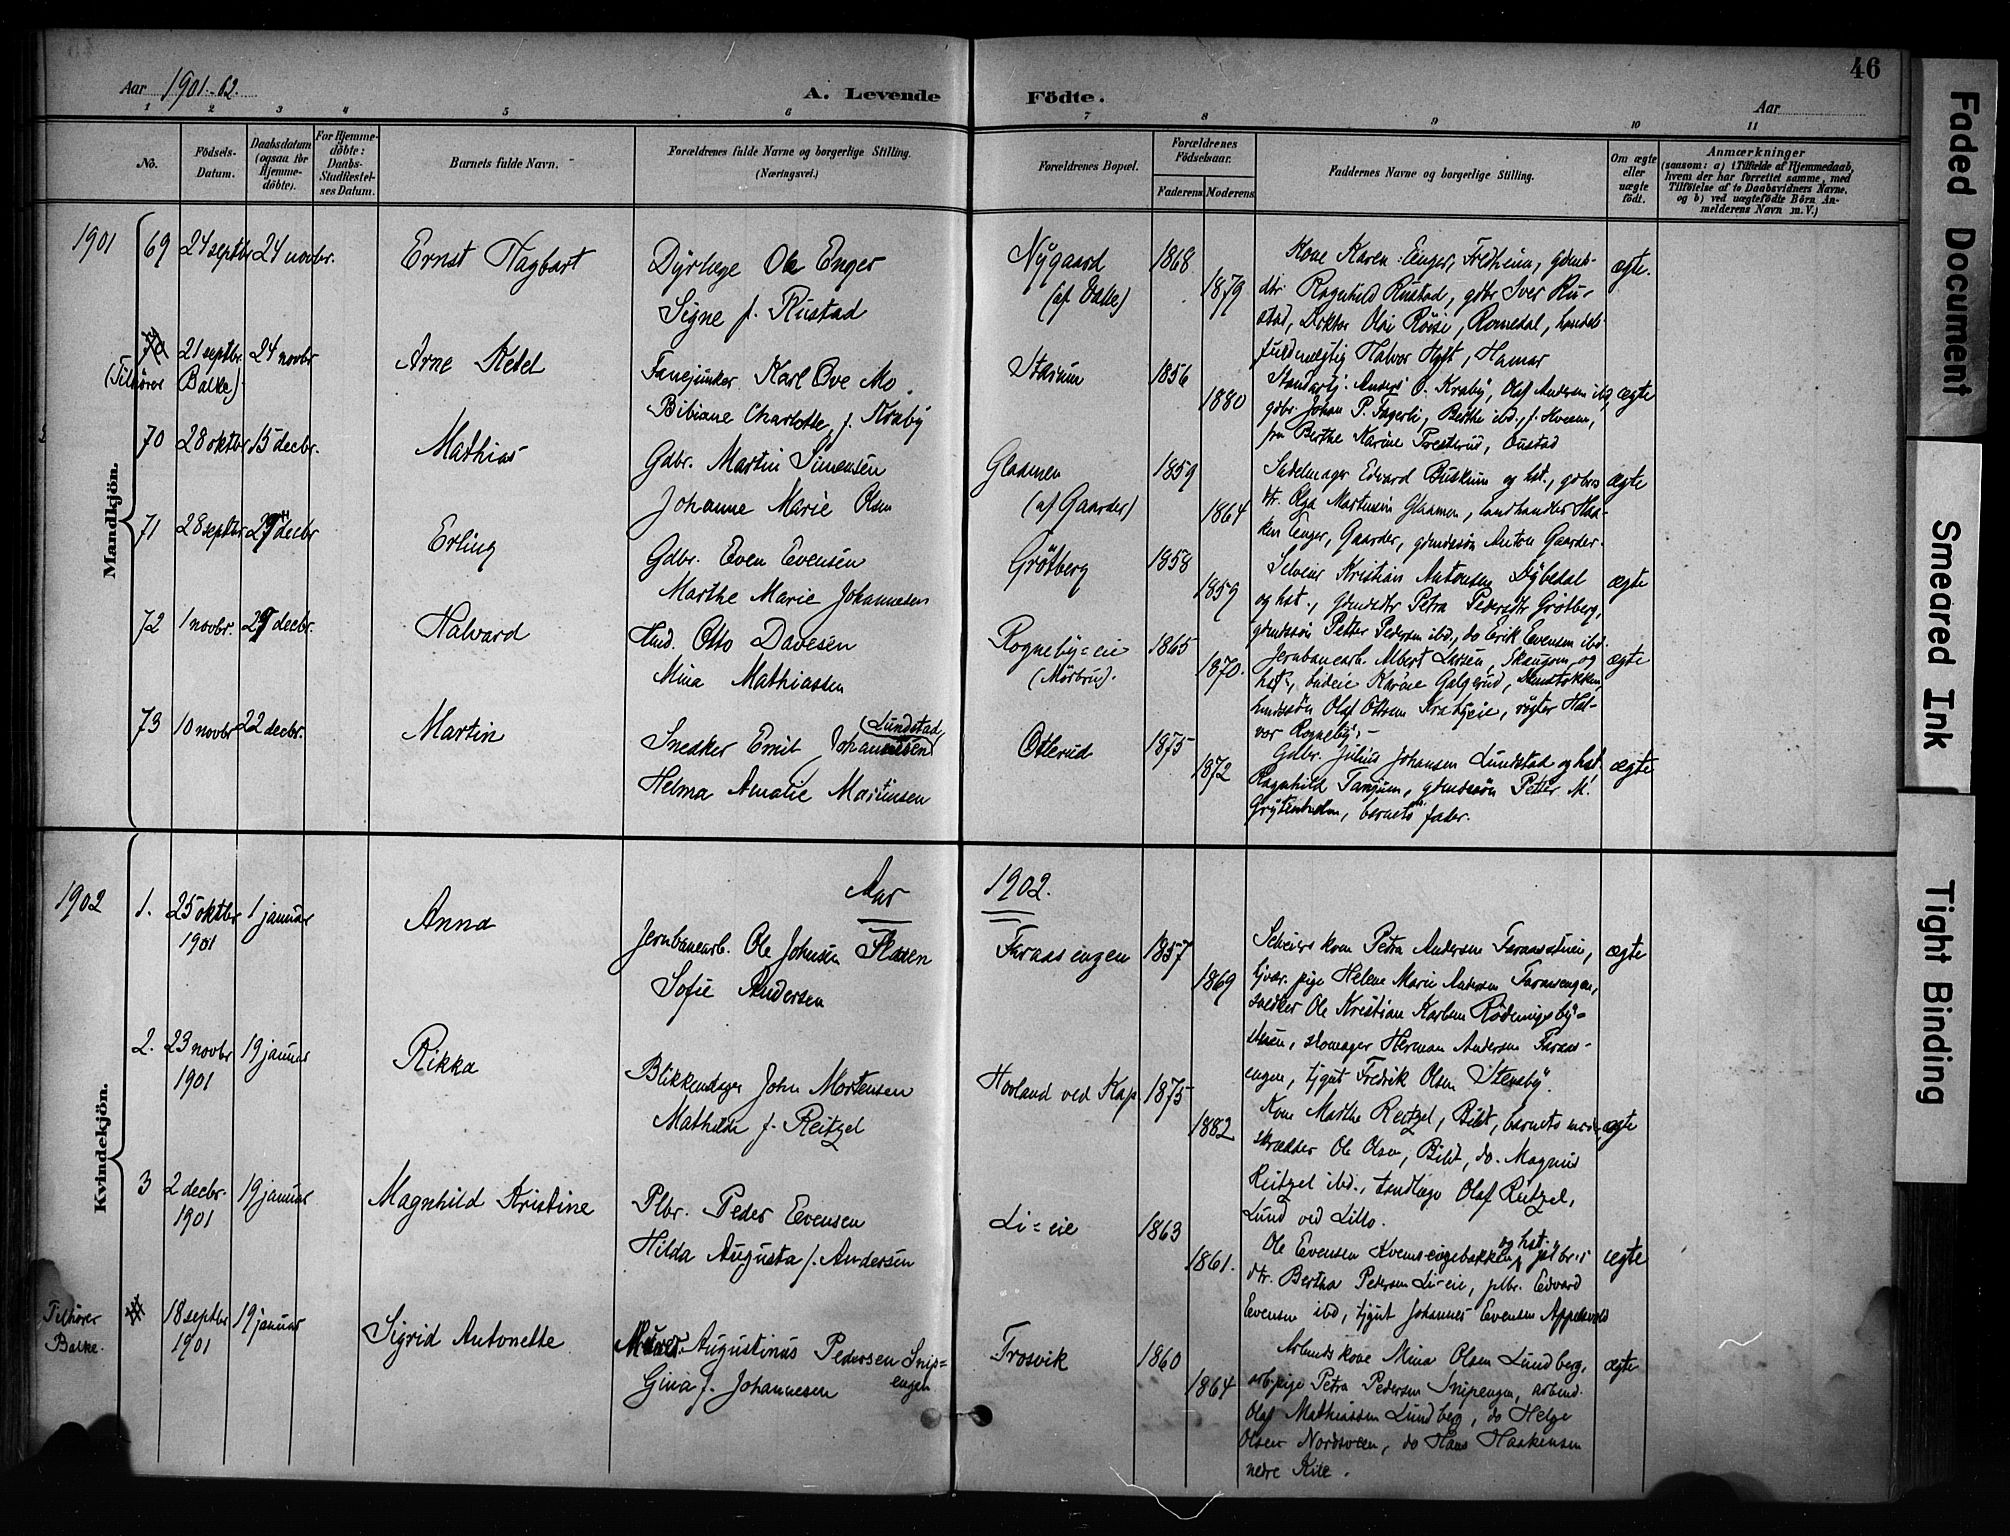 46
Aar 1901-02.
A. Levende Födte.
Aar
1 2 3 4 5 6 7 8 9 10 11
No.
Födsels-
Datum.
Daabsdatum
(ogsaa for
Hjemme-
döbte).
For Hjemme-
döbte:
Daabs-
Stadfæstel-
ses Datum.
Barnets fulde Navn.
Forældrenes fulde Navne og borgerlige Stilling.
(Næringsvei.)
Forældrenes Bopæl.
Forældrenes
Födselsaar.
Faderens Moderens
Faddernes Navne og borgerlige Stilling.
Om ægte
eller
uægte
født.
Anmærkninger
(saasom: a) i Tilfælde af Hjemmedaab,
hvem der har forrettet samme, med
Tilföielse af to Daabsvidners Navne,
og b) ved uægtefödte Börn An-
melderens Navn m. V.)
Mandkjön.
1901 69 24 septbr 24 novbr. Ernst Hagbart
Dyrlæge Ole Enger
Signe f. Rustad
Nygaard
(af Balke)
1868
1879
Kone Karen Enger, Fredheim, gdmds-
dtr Ragnhild Rustad, gdbr Iver Ru-
stad, Doktor Olai Rörsi, Romedal, handels-
fuldmægtig Halvor Hoft, Hamar
ægte.
(Tilhører Balke)
21 septbr. 24 novbr Arne Ketel
Fanejunker Karl Ove Mo.
Bibiane Charlotte, f. Kraby
Starum
1856
1880
Standartj. Anders O. Kraby, Olaf Andersen ibd,
gdbr. Johan P. Fagerli, Berthe ibd., f. Hveem,
frk Berthe Karine Presterud, Oustad
ægte
70 28 oktbr 15 decbr. Mathias
Gdbr. Martin Simensen
Johanne Marie Olsen
Glaamen
(af Gaarder)
1859
1864
Sadelmager Edvard Buskum og hst., gdbrs
dtr. Olga Martinsen Glaamen, landhandler Haa-
ken Enger, Gaarder, gdmdssön Anton Gaarder.
ægte
71 28 septbr 29 decbr Erling
Gdbr. Even Evensen
Marthe Marie Johannesen
Grötberg
1858
1859
Selveier Kristian Antonsen Dybedal
og hst., gdmdsdtr Petra Pedersdtr Grötberg,
gdmdssön Petter Pedersen ibd., do Erik Evensen ibd.
ægte
72 1 novbr. 29 decbr. Halvard
Hmd. Otto Davesen
Mina Mathiassen
Rognebÿ=eie
(Mörbru).
1865
1870.
Jernbanearb. Albert Larsen, Skaugom og
hst., budeie Karine Galgerud,
husmdssön Olaf Ottosen Krabyeie, rögter Hal-
vor Rogneby.
ægte
73 10 novbr 22 decbr. Martin
(Lundstad)
Snedker Emil Johannesen
Helma Amalie Martinsen
Osterud
1875
1872
Gdbr. Julius Johansen Lundstad og hst.
Ragnhild Tangum, gdmdssön Petter M.
barnets fader.
ægte
Aar 1902.
Kvindekjön.
1902 1. 25 oktbr 1 januar Anna
1901
Jernbanearb. Ole Johnsen Flaaen
Sofie Andersen
Faraasengen
1857
1869
Selveiers kone Petra Andersen Faraasstuen,
tjvær. pige Helene Marie Andersen Faraasengen,
snedker Ole Kristian Karlsen Rödningsby=
stuen, skomager Herman Andersen Faraas-
engen, tjgut Fredrik Olsen Stensby.
ægte
2. 23 novbr 19 januar Rikka
1901
Blikkenslager John Mortensen
Mathilde f. Reitzel
Hovland ved Kap
1875
1882
Kone Marthe Reitzel, Bildt, barnets mor,
skrædder Ole Olsen, Bildt, do. Magnus
Reitzel ibd., tandlæge Olaf Reitzel,
Lund ved Lillo.
ægte
3 2 decbr. 19 januar Magnhild Kristine
1901
Plbr. Peder Evensen
Hilda Augusta f. Andersen
Li=eie
1863
1861.
og hst.
Ole Evensen Kvemsengebakken, plbr.s
dtr. Bertha Pedersen Li-eie, plbr. Edvard
Evensen ibd, tjgut Johannes Evensen Appelsvold
ægte
Tilhører
Balke.
18 septbr 19 januar Sigrid Antonette
1901
Murer Augustinus Pedersen Snip=
engen
Gina f. Johannesen
Frosvik
1860
1864
Arbmds kone Mina Olsen Lundberg,
arbpige Petra Pedersen Snipengen, arbmd.
Olaf Mathiassen Lundberg, do Helge
Olsen Nordsveen, do Hans Haakensen
nedre Kile.
ægte
Faded Document
Smeared Ink
Tight Binding